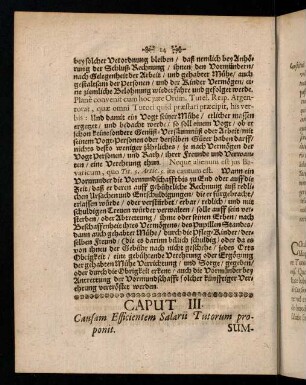 14
bey solcher Verordnung bleiben / daß nemlich bey Anhö-
rung der Schluß-Rechnung / ihnen den Vormündern/
nach Gelegenheit der Arbeit / und gehabter Mühe/ auch
gestaltsam der Personen / und der Kinder Vermögen/ ei-
ne ziemliche Belohnung wiederfahre und gefolget werde.
Planè convenit cum hoc jure Ordin. Tutel. Resp. Argen-
torat, quæ omni Tutori quid præstari præcipit, his ver-
bis: Und damit ein Vogt seiner Mühe / etlicher massen
ergetzt / und bedacht werde / so soll einem Vogt / ob er
schon keine sondere Gewinn-Versäumniß oder Arbeit/ mit
seinem Vogt-Personen oder derselben Güter haben darff/
nichts desto weniger jährliches / je nach Vermögen der
Vogt-Personen / und Rath / ihrer Freunde und Verwand-
ten / eine Verehrung thun. Neque alienum est jus Ba-
varicum, quo Tit. 5. Artic. 5. ita cautum est. Wann ein
Vormunder die Vormundschafft biß zu End oder auff die
Zeit / daß er deren auff gebührliche Rechnung mit redli-
chen Ursachen und Entschuldigungen / die er fürgebracht/
erlassen würde / oder verstürbe / erbar / redlich / und mit
schuldigen Treuen würde verwalten / soll auff sein ver-
sterben / oder Abtrettung / ihme oder seinen Erben / nach
Beschaffenheit ihres Vermögens / des Pupillen Standes/
und auch gehabter Mühe / durch die Pfleg-Kinder / der-
selben Freund / (die es darum billich schuldig / oder da es
von ihnen der Gebühr nach nicht geschehe / jedes Orts
Obrigkeit / eine gebührende Verehrung oder Ergötzung
der gehabten Mühe Vorrückung / und Sorge / gegeben/
oder durch die Obrigkeit erkennt / auch die Vormünder bey
Antrettung der Vormundschafft solcher künfftiger Ver-
ehrung vertröstet werden.
CAPUT III.
Causam Efficientem Salarii Tutorum pro-
ponit.
SUM-